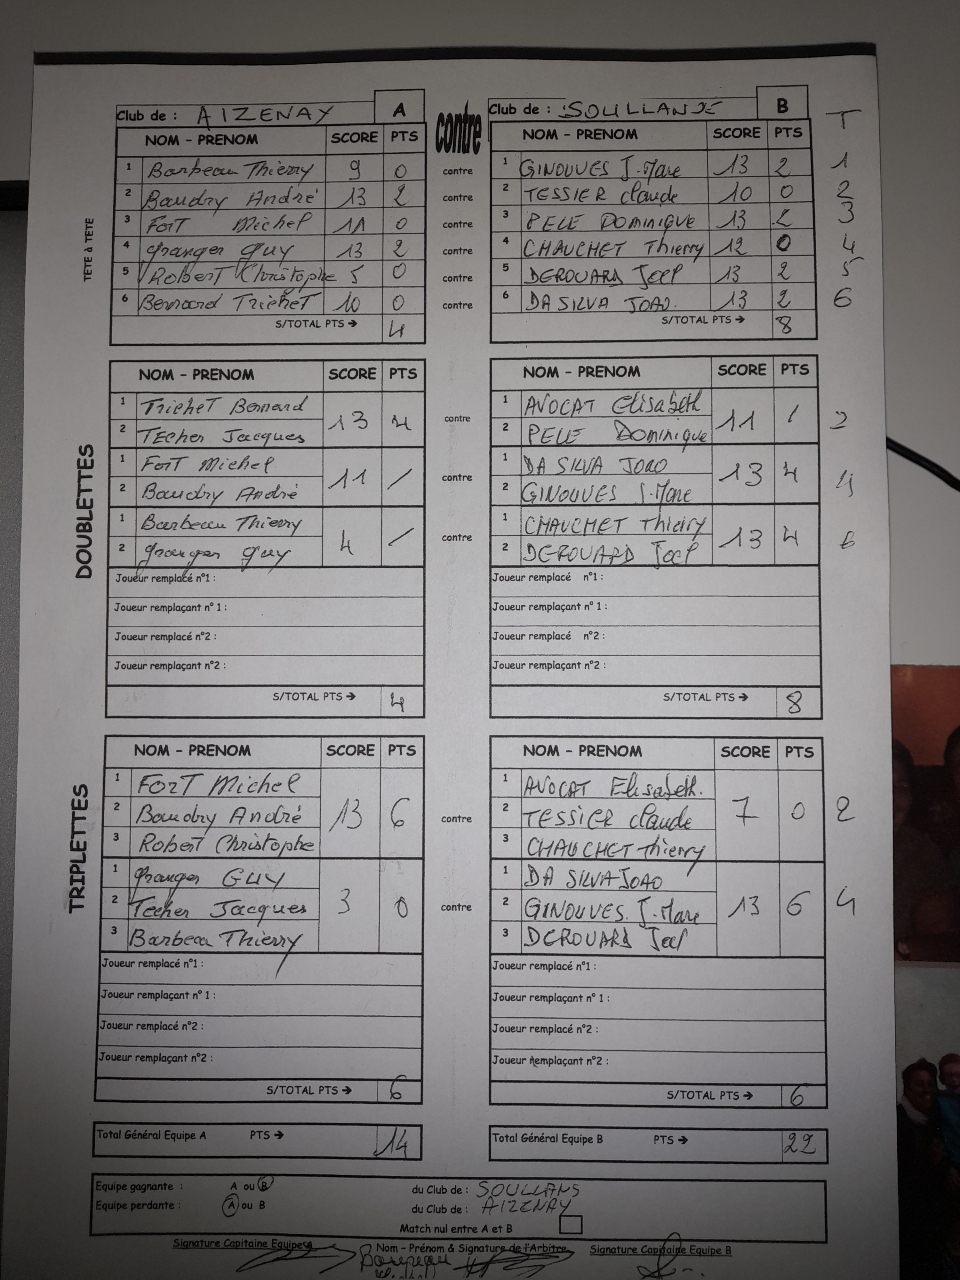 Club de : AIZENAY A contre Club de : SOULLANS B
T
NOM - PRENOM SCORE PTS NOM - PRENOM SCORE PTS
TÊTE à TÊTE
1 Barbeau Thierry 9 0 contre 1 GINOUVES J-Marc 13 2 1
2 Baudry André 13 2 contre 2 TESSIER Claude 10 0 2
3 FORT Michel 11 0 contre 3 PELE DOMINIQUE 13 2 3
4 Granger Guy 13 2 contre 4 CHAUCHET Thierry 12 0 4
5 Robert Christophe 5 0 contre 5 DEROUARD Joel 13 2 5
6 Bernard TricheT 10 0 contre 6 DA SILVA JOAO 13 2 6
S/TOTAL PTS → 4 S/TOTAL PTS → 8
NOM - PRENOM SCORE PTS NOM - PRENOM SCORE PTS
DOUBLETTES
1 TricheT Bernard 13 4 contre 1 AVOCAT Elisabeth 11 / 2
2 TEcher Jacques 2 PELE Dominique
1 ForT Michel 11 / contre 1 DA SILVA JOAO 13 4 4
2 Baudry André 2 GINOUVES J-Marc
1 Barbeau Thierry 4 / contre 1 CHAUCHET Thierry 13 4 6
2 Granger Guy 2 DEROUARD Joel
Joueur remplacé n°1 : Joueur remplacé n°1 :
Joueur remplaçant n° 1 : Joueur remplaçant n° 1 :
Joueur remplacé n°2 : Joueur remplacé n°2 :
Joueur remplaçant n°2 : Joueur remplaçant n°2 :
S/TOTAL PTS → 4 S/TOTAL PTS → 8
NOM - PRENOM SCORE PTS NOM - PRENOM SCORE PTS
TRIPLETTES
1 FORT Michel 1 AVOCAT Elisabeth.
2 Baudry André 13 6 contre 2 TESSIER Claude 7 0 2
3 RoberT Christophe 3 CHAUCHET Thierry
1 Granger GUY 1 DA SILVA JOAO
2 Techer Jacques 3 0 contre 2 GINOUVES J-Marc 13 6 4
3 Barbeau Thierry 3 DEROUARD Joel
Joueur remplacé n°1 : Joueur remplacé n°1 :
Joueur remplaçant n° 1 : Joueur remplaçant n° 1 :
Joueur remplacé n°2 : Joueur remplacé n°2 :
Joueur remplaçant n°2 : Joueur remplaçant n°2 :
S/TOTAL PTS → 6 S/TOTAL PTS → 6
Total Général Equipe A PTS → 14 Total Général Equipe B PTS → 22
Equipe gagnante : A ou B du Club de : SOULLANS
Equipe perdante : A ou B du Club de : AIZENAY
Match nul entre A et B
Signature Capitaine Equipe Nom - Prénom & Signature de l'Arbitre Signature Capitaine Equipe B